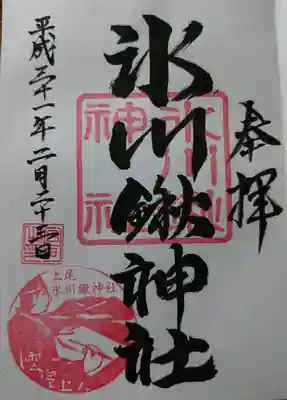 奉拝
氷川鍬神社
平成三十一年二月二十三日
氷川鍬
神社
上尾
氷川鍬神社
雲室上人